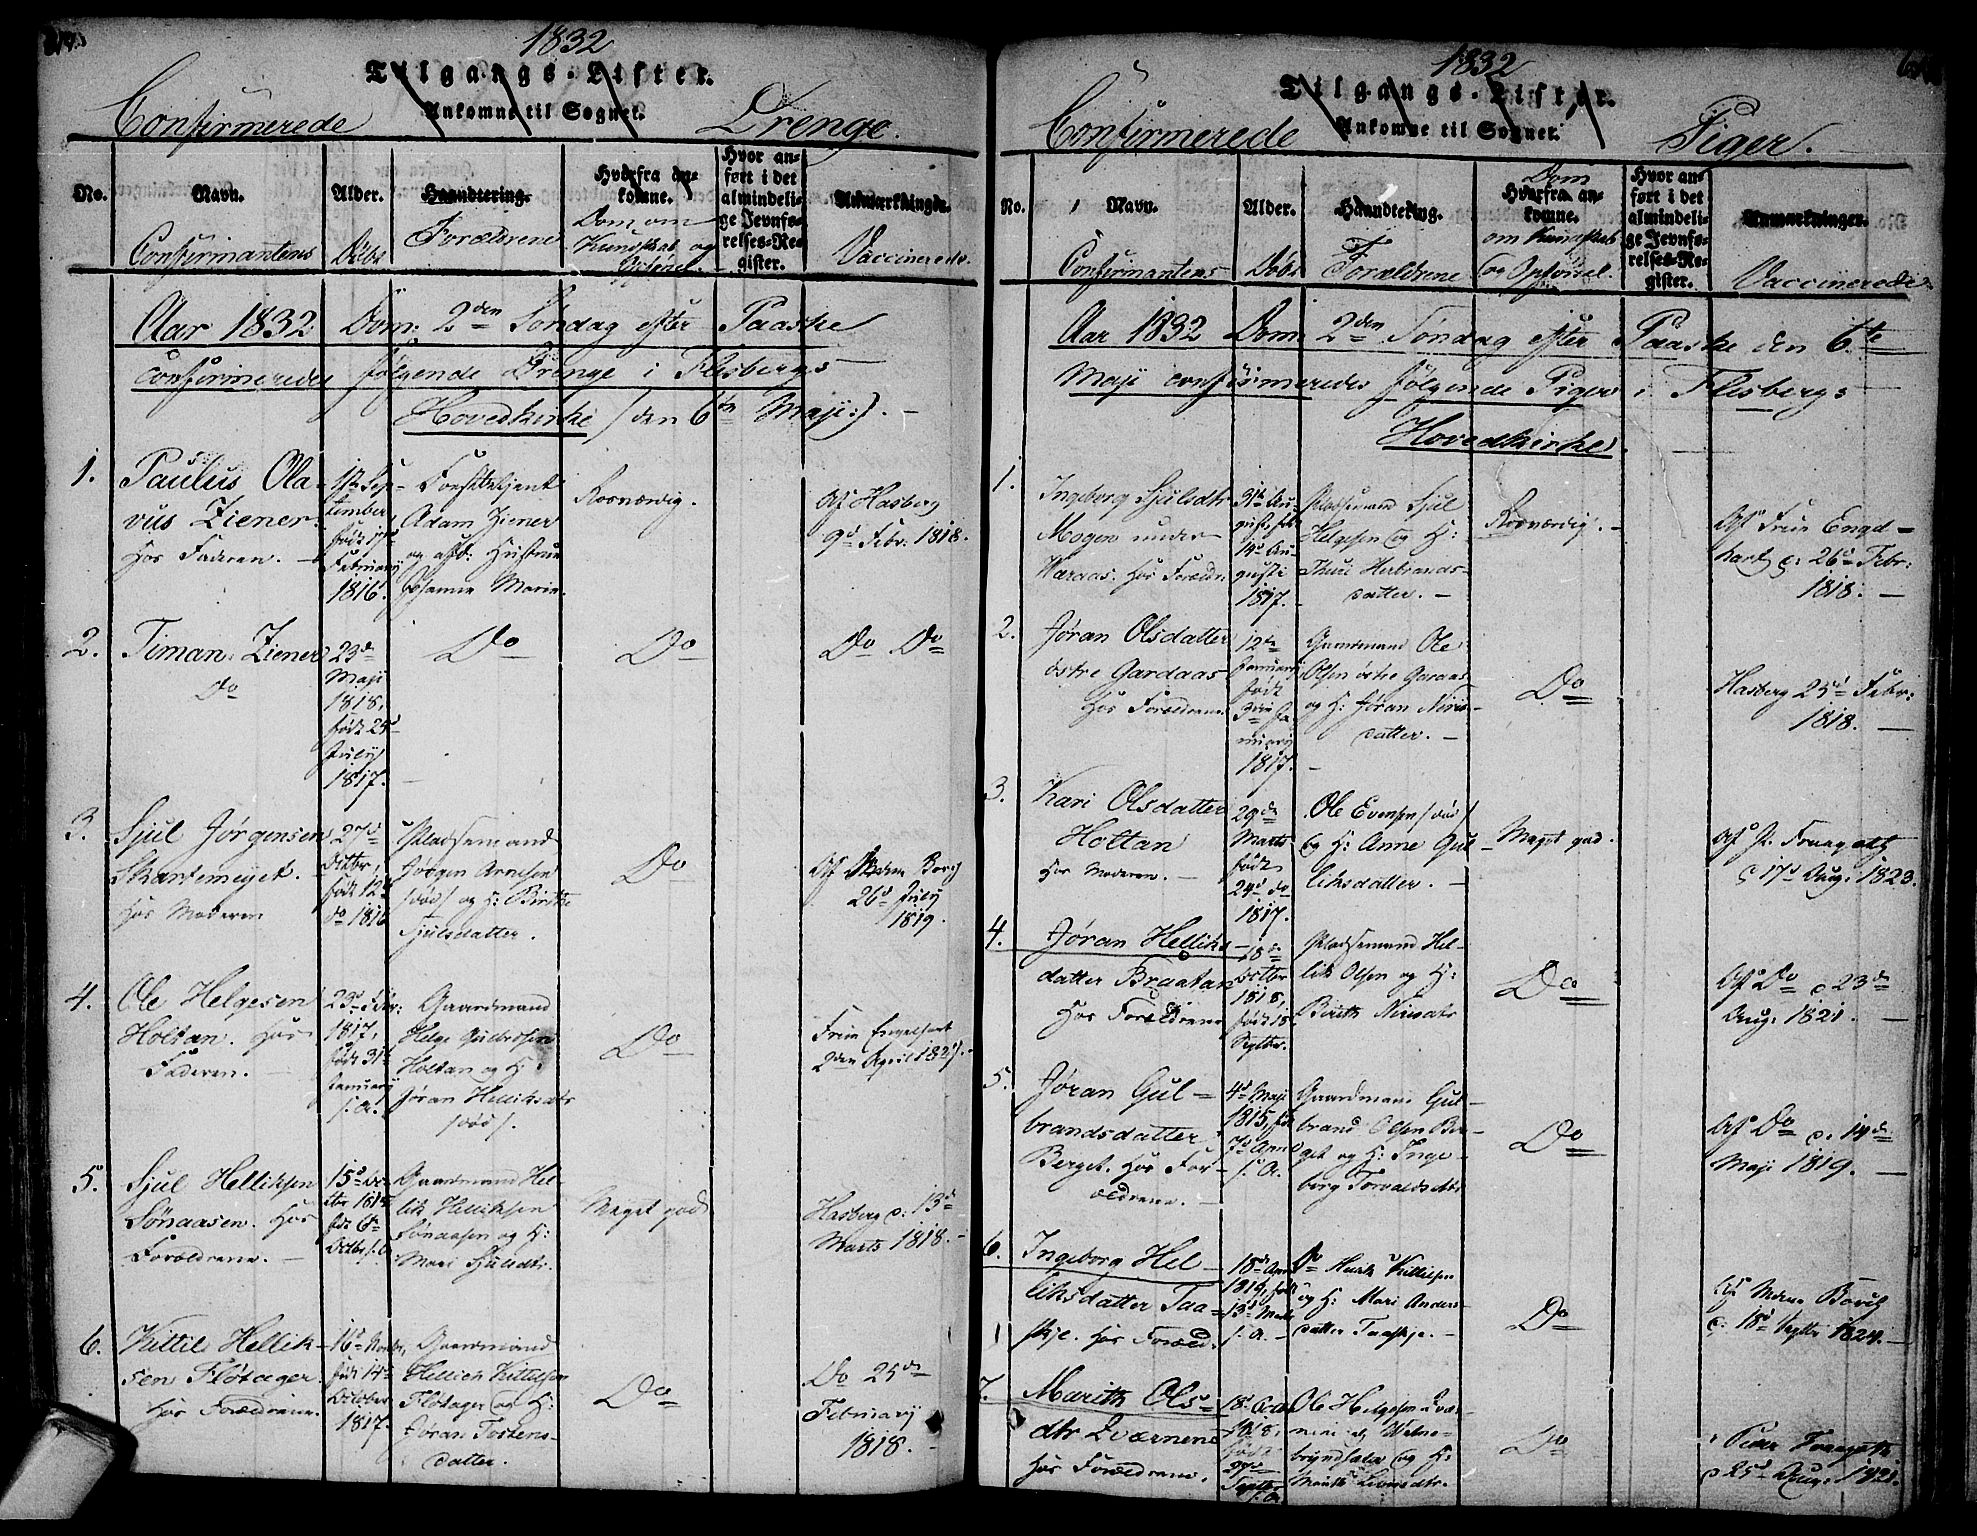 1832
Tilgangs-Lister.
Ankomne til Sognet.
Confirmerede Drenge.
No.
Navn.
Confirmantens
Alder.
Døbt
Haandtering.
Forældrene
Hvorfra ankomne.
Dom om
Kundskab og
Opførsel.
Hvor an-
ført i det
almindeli-
ge Jevnfø-
relses-Re-
gister.
Anmærkninger.
Vaccinerede.
Aar 1832 Dom: 2den Søndag efter Paaske
confirmeredes følgende Drenge i Flesbergs
Hovedkirke (den 6te Maji:). -
1.
Paulus Ola-
vus Ziener.
Hos Faderen. -
1ste Sep-
tember
født 17de
Februarij
1816.
Adam Ziener
og afd. Hustrue
Johanna Marie.
Rosværdig.
Af Hasberg
9d Febr: 1818.
2.
Timan Ziener
Do
23de
Maji
1818,
født 25d
Julij
1817.
Do
Do
Do Do
3.
Sjul Jørgensen
Skartemeyet.
Hos Moderen
27d
Octbr,
født 12d
do 1816
Pladsemand
Jørgen Arnesen
(død) og H: Birthe
Sjulsdatter.
Do
26d Julij
1819.
4.
Ole Helgesen
Holtan. Hos
Faderen. -
23d Febr:
1817,
født 31te
Januarij
s. A.
Gaardmand
Helge Gulbrdsen
Holtan og H:
Jøran Helliksdtr
(død).
Do
Frue Engelhart
5.
Sjul Helliksen
Sønaasen. Hos
Forældrene. -
Gaardmand Hel-
lik Helliksen
Sønaasen og H:
Mari Sjulsdtr.
Meget god
Hasberg d: 13de
Marts 1818. -
6.
Kittil Hellik-
sen Fløtager.
Hos Forældrene.
16d Novbr,
født 14de
October
1817.
Gaardmand
Hellick Kittilsen
Fløtager og H:
Jøran Tostens-
datter.
Do
Do 25de
Februarij
1818. -
1832
Tilgangs-Lister.
Ankomne til Sognet.
Confirmerede Piger.
No.
Navn.
Confirmantens
Alder.
Døbt
Haandtering.
Forældrene
Hvorfra an-
komne.
Dom
om Kundskab
og Opførsel.
Hvor an-
ført i det
almindeli-
ge Jevnfø-
relses-Re-
gister.
Anmærkninger.
Vaccinerede
Aar 1832 Dom. 2den Søndag efter Paaske den 6te
Maji confirmeredes følgende Piger i Flesbergs
Hovedkirke.
1.
Ingeborg Sjulsdtr
Mogen under
Waraas. Hos Forældr.
31te Au-
gust, født
14d Au-
gusti
1817.
Pladsemand Sjul
Helgesen og H:
Thuri Herbrands-
datter. -
Rosværdig. -
Af Frue Engel-
hart d: 26d Febr:
1818. -
2.
Jøran Olsdatter
østre Gardaas
Hos Forældrene
12te
Januarij
født
3die Ja-
nuarij
1817.
Gaardmand Ole
Olsen østre Garaas
og H: Jøran Niris-
datter. -
Do
Hasberg 25d Febr:
1818. -
3.
Kari Olsdatter
Holtan
Hos Moderen. -
29de
Marts
født
24d do
1817.
Ole Evensen (død)
og H: Anne Gul-
liksdatter. -
Meget god.
d 17d Aug: 1823.
4.
Jøran Helliks-
datter Braatan
Hos Forældrene
18de
Octbr
1818,
født 15
Septbr.
Pladsemand Hel-
lik Olsen og H:
Birith Nirisdtr
Do
Af Do d 23de
Aug: 1821. -
5.
Jøran Gul-
brandsdatter
Berget. Hos For-
ældrene. -
4d Maji
1815, født
7d April
s. A.
Gaardmand Gul-
brand Olsen Ber-
get og H: Inge-
borg Torvaldsdtr
Do
Af Do d. 14de
Maji 1819. -
6.
Ingeborg Hel-
liksdatter Taa-
skje. Hos Foræld:
Do Hellik Kittilsen
og H: Mari Anders-
datter Taaskje. -
Do
d. 18d Septbr 1824. -
7.
Marith Ols-
dtr Qværnene
Hos Forældrene.
Septbr
s. A.
Do
d 25d Aug: 1821.